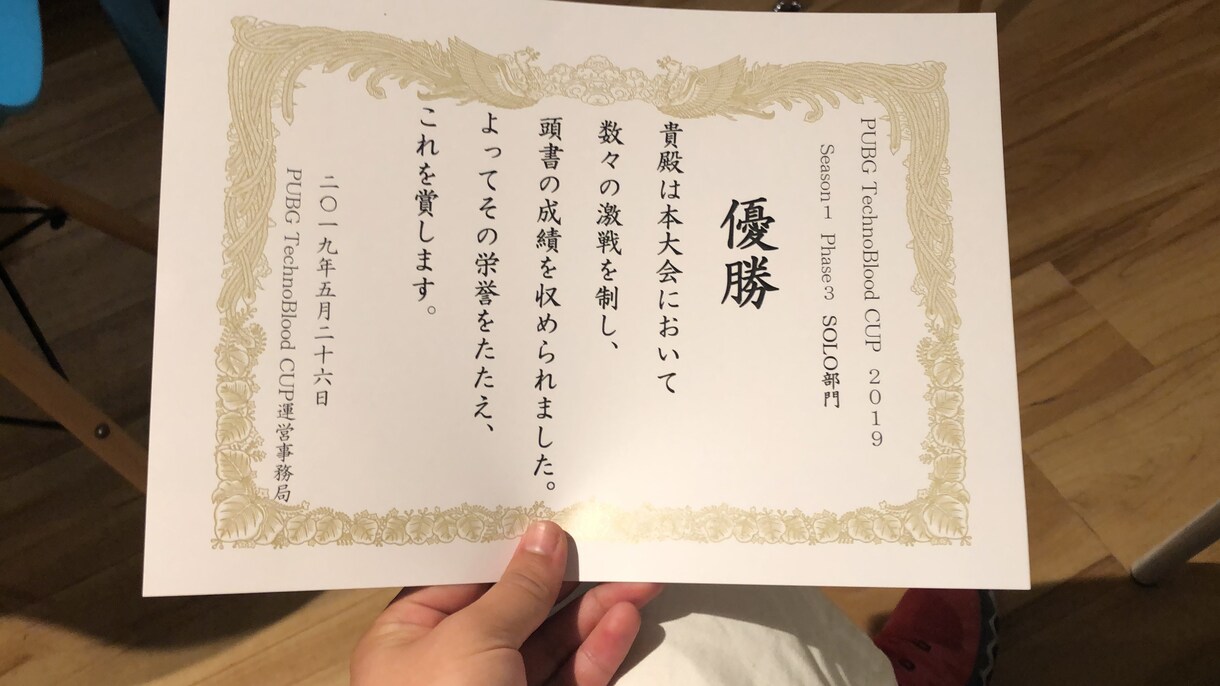 PUBG TechnoBlood CUP 2019
Season1 Phase3 SOLO部門
優勝
貴殿は本大会において
数々の激戦を制し、
頭書の成績を収められました。
よってその栄誉をたたえ、
これを賞します。
二〇一九年五月二十六日
PUBG TechnoBlood CUP運営事務局